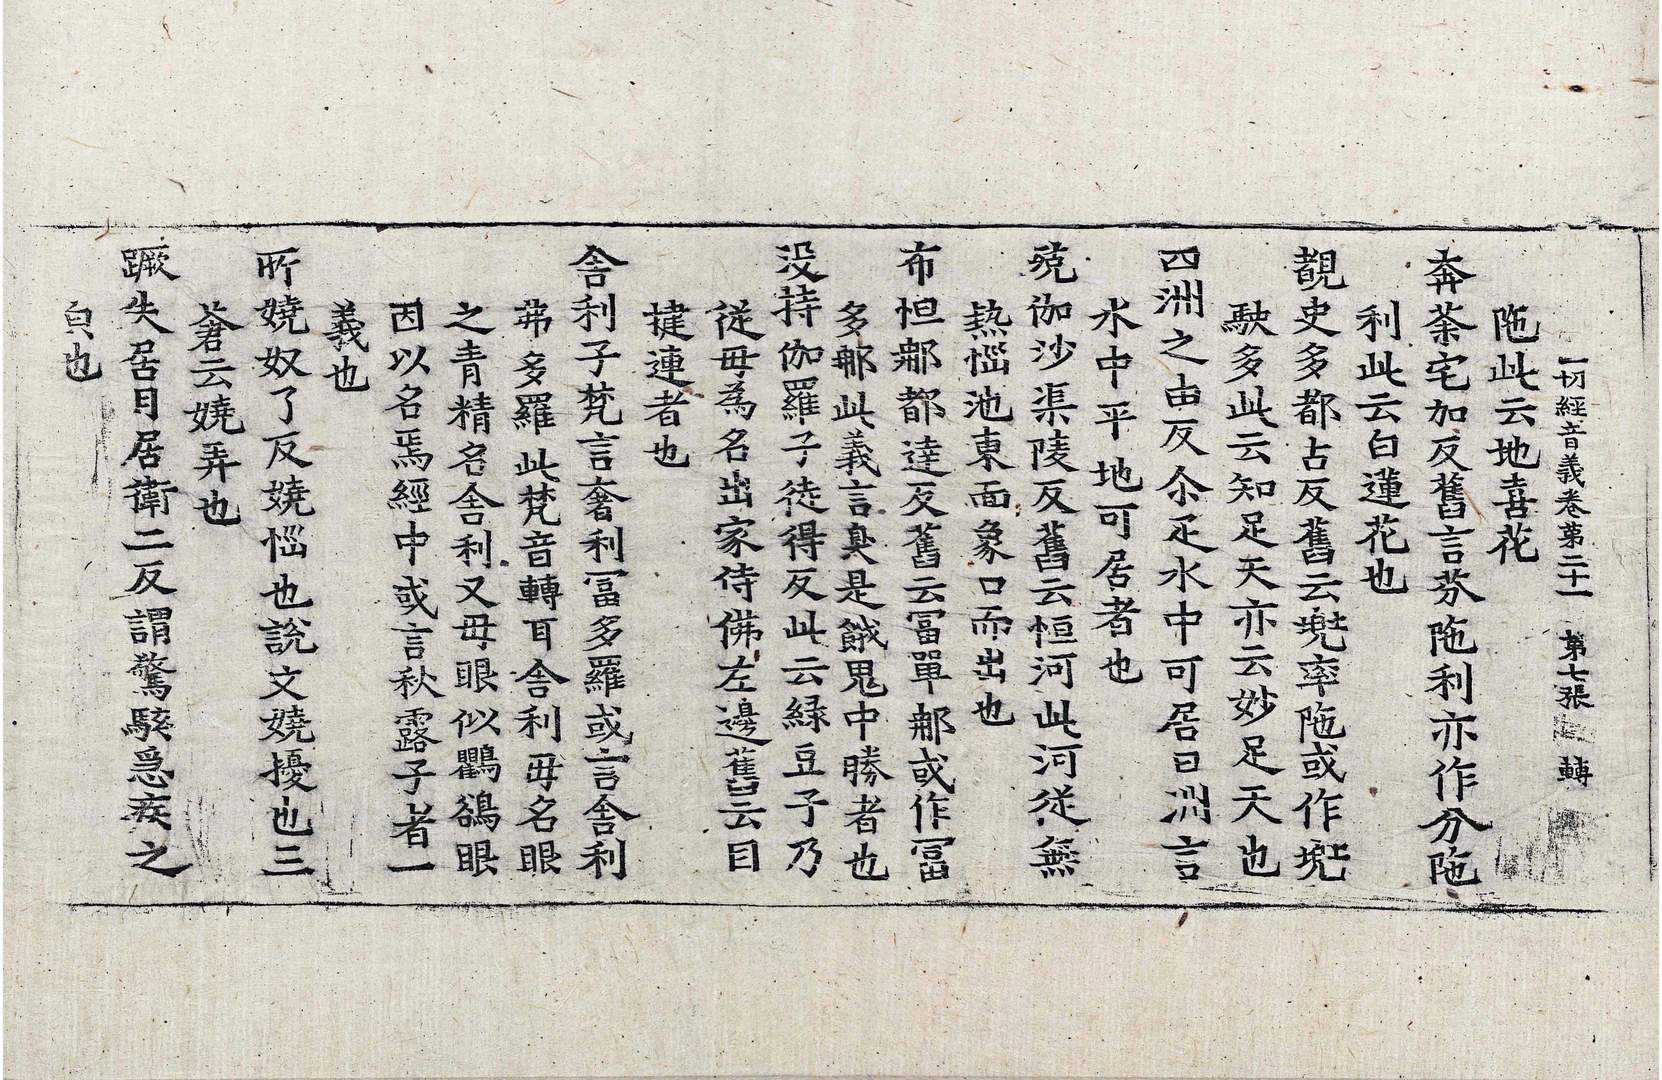 一切經音義卷第二十一 第七張 轉
陁此云地喜花
奔荼宅加反舊言芬陁利亦作分陁
利此云白蓮花也
覩史多都古反舊云兠率陁或作兠
駛多此云知足天亦云妙足天也
四洲之由反尒疋水中可居曰洲言
水中平地可居者也
殑伽沙渠陵反舊云恒河此河從無
熱惱池東面象口而出也
布怛郍都達反舊云冨單郍或作冨
多郍此義言臭是餓鬼中勝者也
没特伽羅子徒得反此云綠豆子乃
從母為名出家侍佛左邊舊云目
揵連者也
舍利子梵言奢利冨多羅或言舍利
弗多羅此梵音轉耳舍利毋名眼
之青精名舍利又毋眼似鸜鵒眼
因以名焉經中或言秋露子者一
義也
所嬈奴了反嬈惱也說文嬈擾也三
蒼云嬈弄也
蹶失居月居衛二反謂驚駭急疾之
皃也